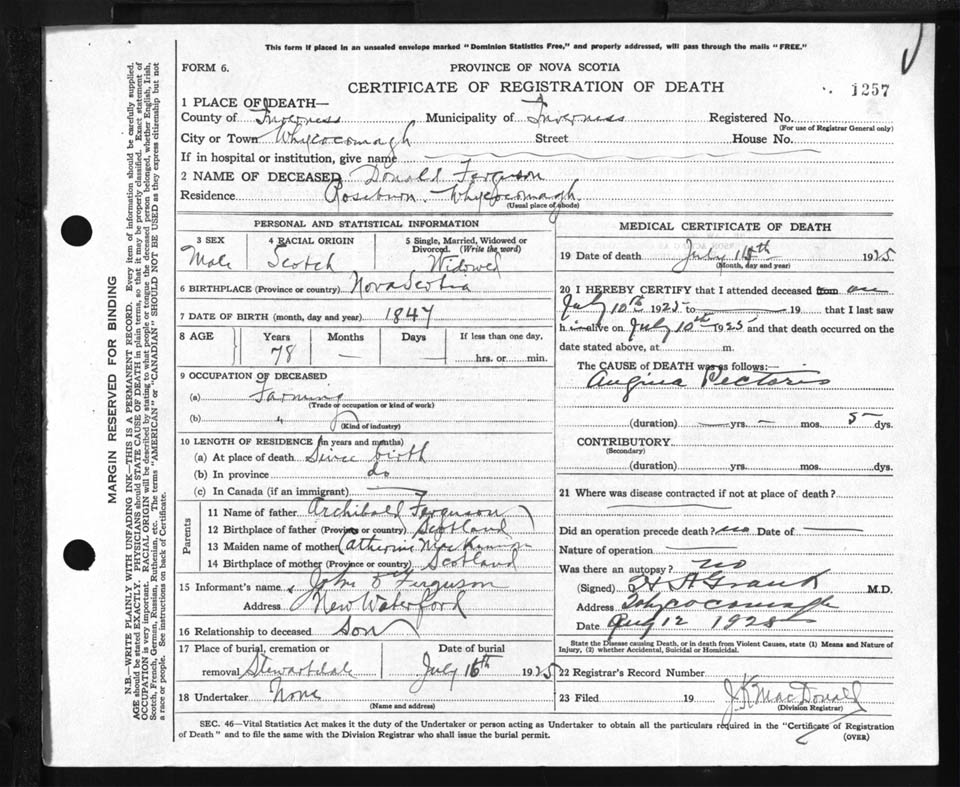 This form if placed in an unsealed envelope marked "Dominion Statistics Free," and properly addressed, will pass through the mails "FREE."
FORM 6.
PROVINCE OF NOVA SCOTIA
CERTIFICATE OF REGISTRATION OF DEATH
1257
1 PLACE OF DEATH—
County of Inverness Municipality of Inverness Registered No.
(For use of Registrar General only)
City or Town Whycocomagh Street House No.
If in hospital or institution, give name
2 NAME OF DECEASED Donald Ferguson
Residence Roseburn Whycocomagh
(Usual place of abode)
PERSONAL AND STATISTICAL INFORMATION
3 SEX 4 RACIAL ORIGIN 5 Single, Married, Widowed or
Divorced. (Write the word)
Male Scotch Widowed
6 BIRTHPLACE (Province or country) Nova Scotia
7 DATE OF BIRTH (month, day and year) 1847
8 AGE Years Months Days If less than one day,
78 — hrs. or min.
9 OCCUPATION OF DECEASED
(a) Farming
(Trade or occupation or kind of work)
(b)
(Kind of industry)
10 LENGTH OF RESIDENCE (in years and months)
(a) At place of death Since birth
(b) In province do
(c) In Canada (if an immigrant)
Parents
11 Name of father Archibald Ferguson
12 Birthplace of father (Province or country) Scotland
13 Maiden name of mother Catherine MacKinnon
14 Birthplace of mother (Province or country) Scotland
15 Informant's name John Ferguson
Address New Waterford
16 Relationship to deceased Son
17 Place of burial, cremation or Date of burial
removal Stewartdale July 16th 1925
18 Undertaker None
(Name and address)
MEDICAL CERTIFICATE OF DEATH
19 Date of death July 15th 1925
(Month, day and year)
20 I HEREBY CERTIFY that I attended deceased from on
July 10th 1925 to 19 that I last saw
h im alive on July 10th 1925 and that death occurred on the
date stated above, at m.
The CAUSE of DEATH was as follows:—
Angina Pectoris
(duration) yrs. — mos. 5 dys.
CONTRIBUTORY
(Secondary)
(duration) yrs. mos. dys.
21 Where was disease contracted if not at place of death?
Did an operation precede death? no Date of
Nature of operation
Was there an autopsy? no
(Signed) H A Grant M.D.
Address Whycocomagh
Date Aug 12 1925
State the Disease causing Death, or in death from Violent Causes, state (1) Means and Nature of
Injury, (2) whether Accidental, Suicidal or Homicidal.
22 Registrar's Record Number
23 Filed 19 J. K. MacDonald
(Division Registrar)
SEC. 46—Vital Statistics Act makes it the duty of the Undertaker or person acting as Undertaker to obtain all the particulars required in the "Certificate of Registration
of Death" and to file the same with the Division Registrar who shall issue the burial permit.
(OVER)
MARGIN RESERVED FOR BINDING
N.B.—WRITE PLAINLY WITH UNFADING INK—THIS IS A PERMANENT RECORD. Every item of information should be carefully supplied.
AGE should be stated EXACTLY. PHYSICIANS should STATE CAUSE OF DEATH in plain terms, so that it may be properly classified. Exact statement of
OCCUPATION is very important. RACIAL ORIGIN will be described by stating to what people or tongue the deceased person belonged, whether English, Irish,
Scotch, French, German, Russian, Ruthenian, etc. The terms "AMERICAN" or "CANADIAN" SHOULD NOT BE USED as they express citizenship but not
a race or people. See instructions on back of Certificate.